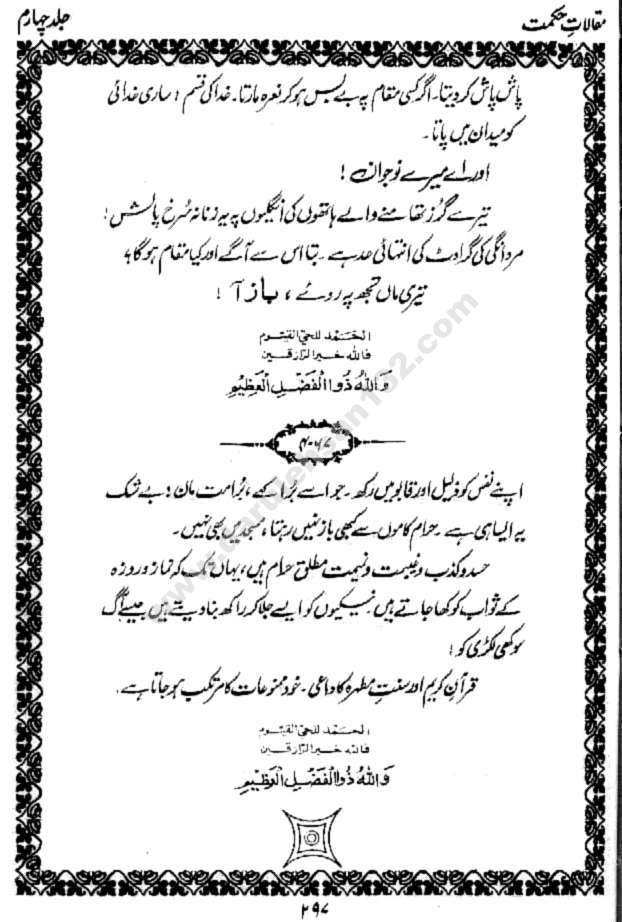 مقالاتِ حکمت
جلد چہارم
پاش پاش کر دیتا۔ اگر کسی مقام پہ بے بس ہو کر نعرہ مارتا۔ خدا کی قسم! ساری خدائی
کو میدان میں پاتا۔
اور اے میرے نوجوان!
تیرے گُرز تھامنے والے ہاتھوں کی انگلیوں پہ یہ زنانہ سُرخ پالش!
مردانگی کی گراوٹ کی انتہائی حد ہے۔ بتا اس سے آگے اور کیا مقام ہو گا؟
تیری ماں تجھ پہ روئے، باز آ!
الحمد للحی القیوم
فاللہ خیر الرازقین
وَاللّٰهُ ذُوا الْفَضْلِ الْعَظِيْمِ
اپنے نفس کو ذلیل اور قابو میں رکھ۔ جو اسے بُرا کہے، بُرا مت مان: بے شک
یہ ایسا ہی ہے۔ حرام کاموں سے کبھی باز نہیں رہتا، مسجد میں بھی نہیں۔
حسد و کذب و غیبت و نمیمت مطلق حرام ہیں، یہاں تک کہ نماز و روزہ
کے ثواب کو کھا جاتے ہیں۔ نیکیوں کو ایسے جلا کر راکھ بنا دیتے ہیں جیسے آگ
سوکھی لکڑی کو!
قرآنِ کریم اور سنتِ مطہرہ کا داعی۔ خود ممنوعات کا مرتکب ہو جاتا ہے۔
الحمد للحی القیوم
فاللہ خیر الرازقین
وَاللّٰهُ ذُوا الْفَضْلِ الْعَظِيْمِ
۲۹۷